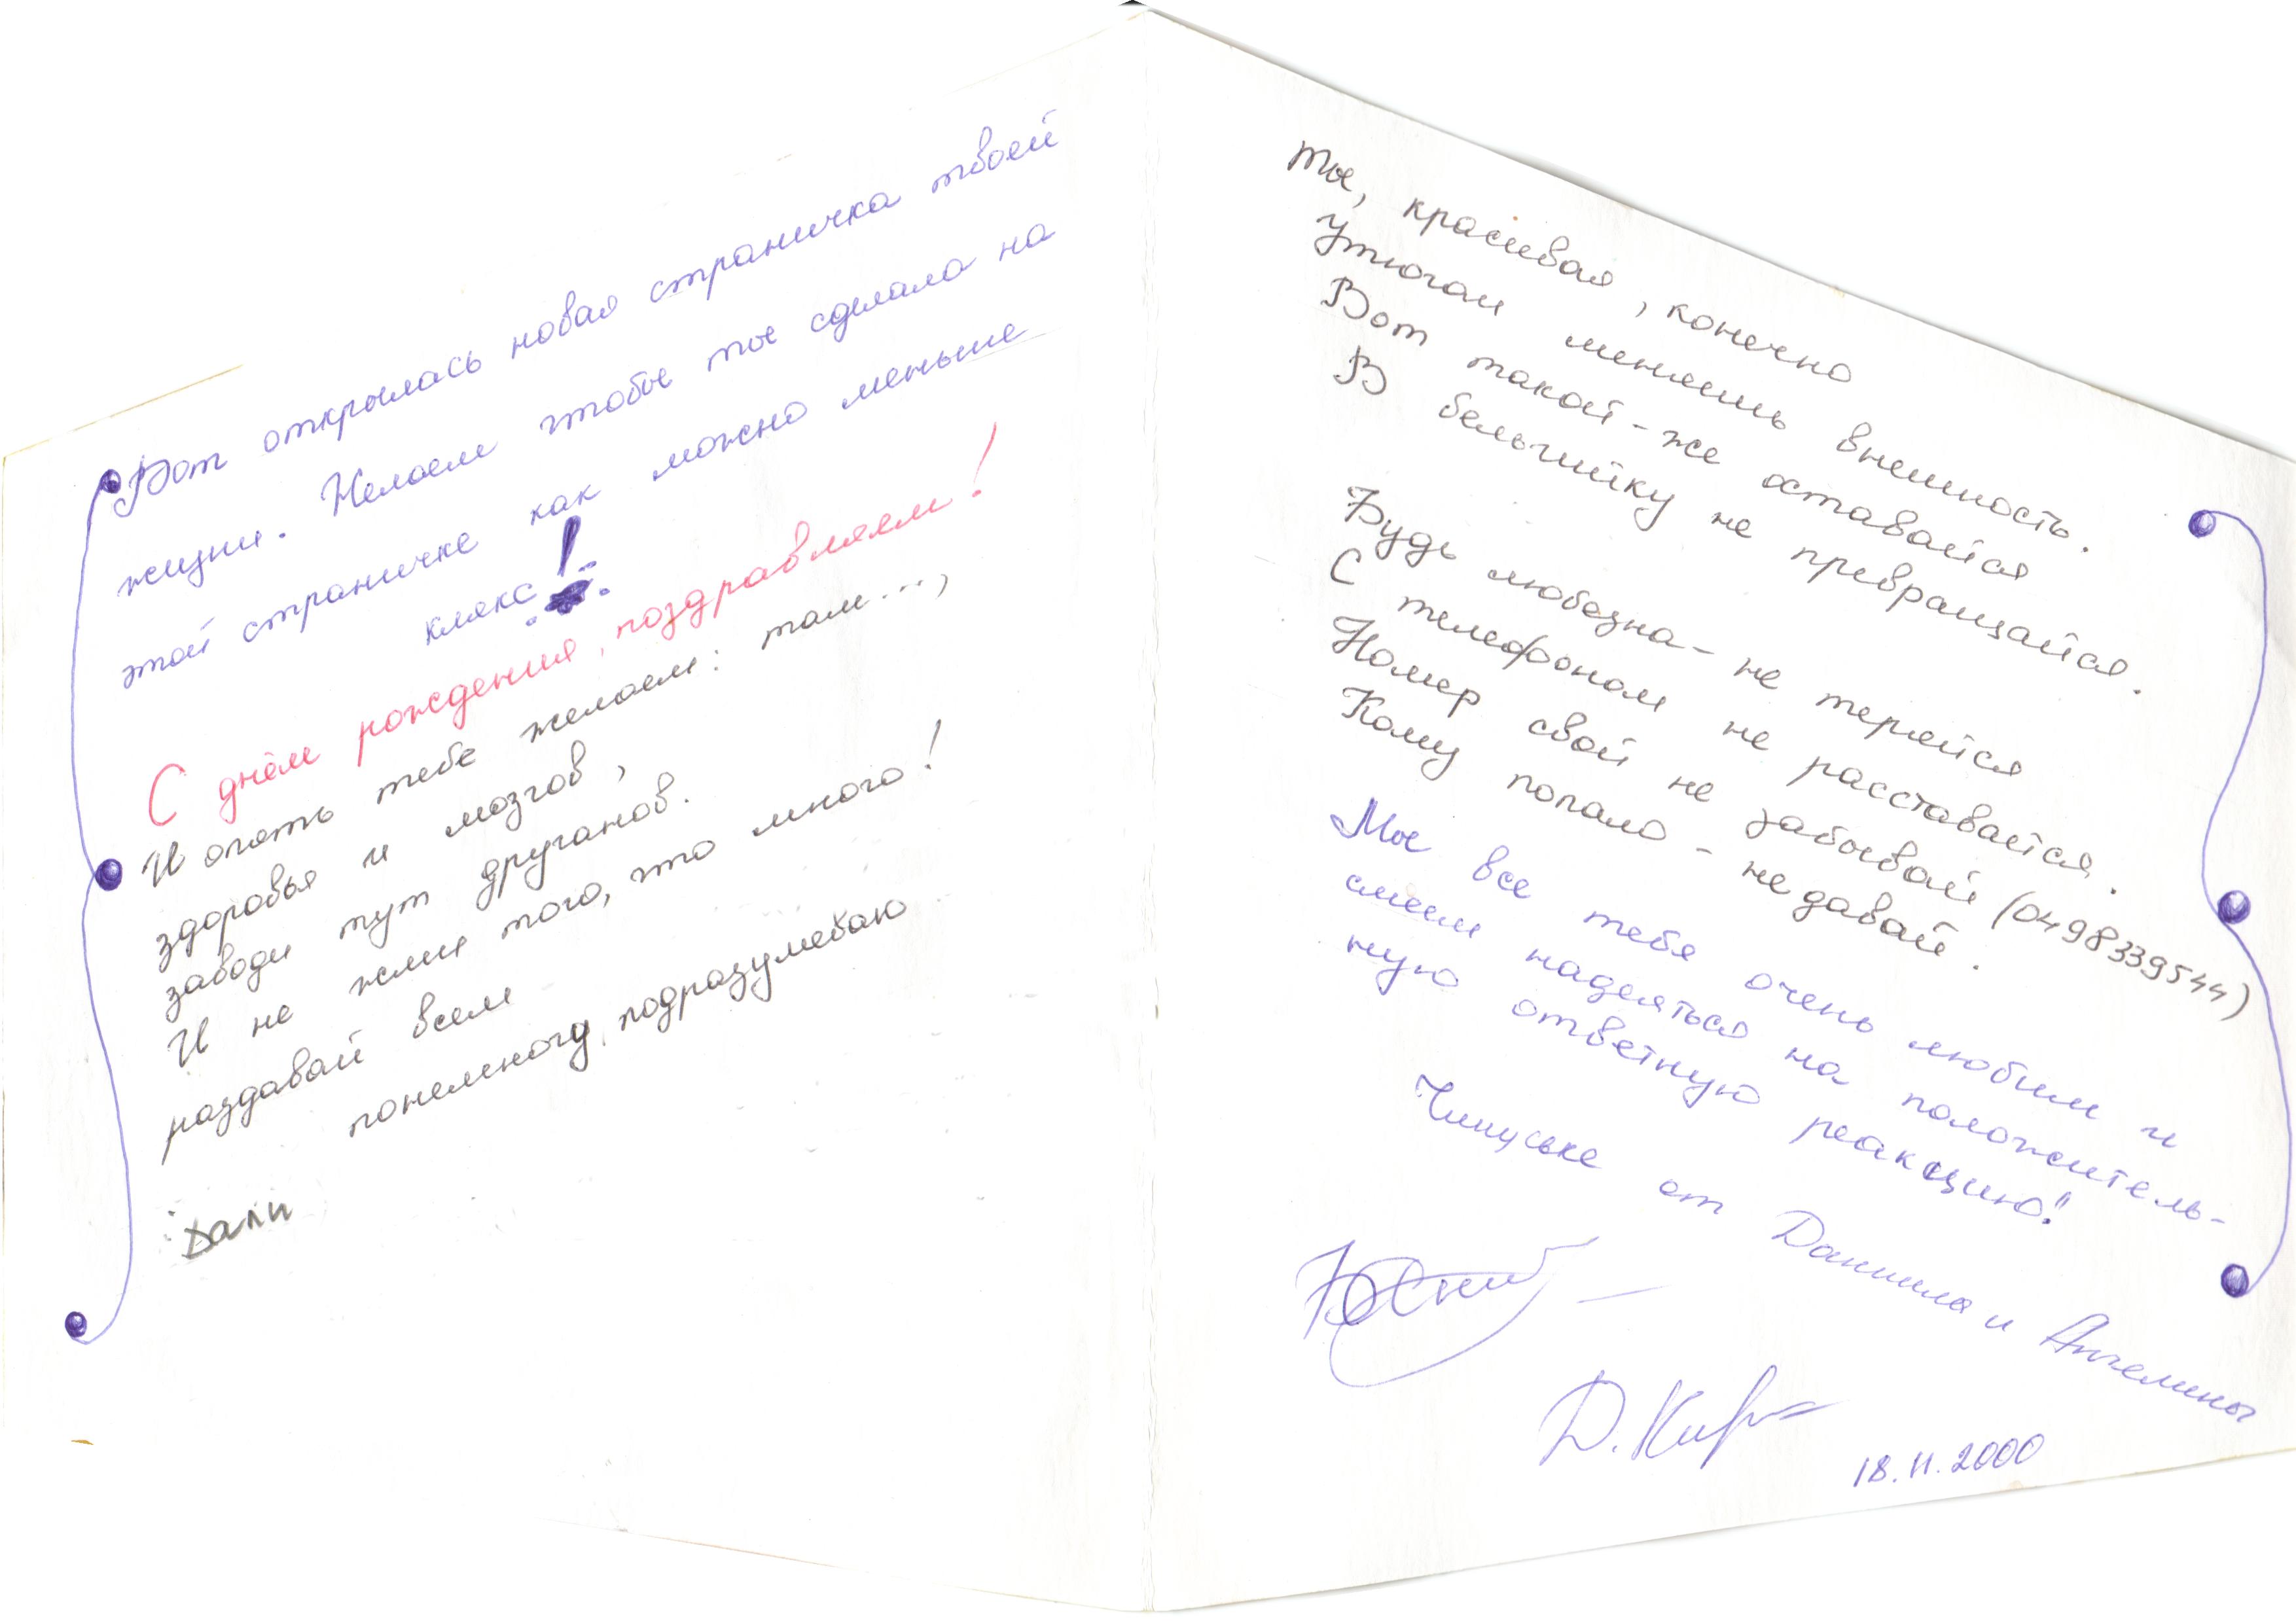 Вот открылась новая страничка твоей
жизни. Желаем чтобы ты сделала на
этой страничке как можно меньше
клякс!
С днём рождения, поздравляем!
И опять тебе желаем: там...,
здоровья и мозгов,
заводи тут друганов.
И не жмись того, что много!
раздавай всем
понемногу, подразумеваю
Дали
Ты, красивая, конечно
Утюгом меняешь внешность.
Вот такой-же оставайся
В бельгийку не превращайся.
Будь любезна - не теряйся
С телефоном не расставайся.
Номер свой не забывай (0498339544)
Кому попало - не давай.
Мы все тебя очень любим и
смеем надеяться на положитель-
ную ответную реакцию!"
от Даниила и Ангелины
Д. Кир
18.11.2000